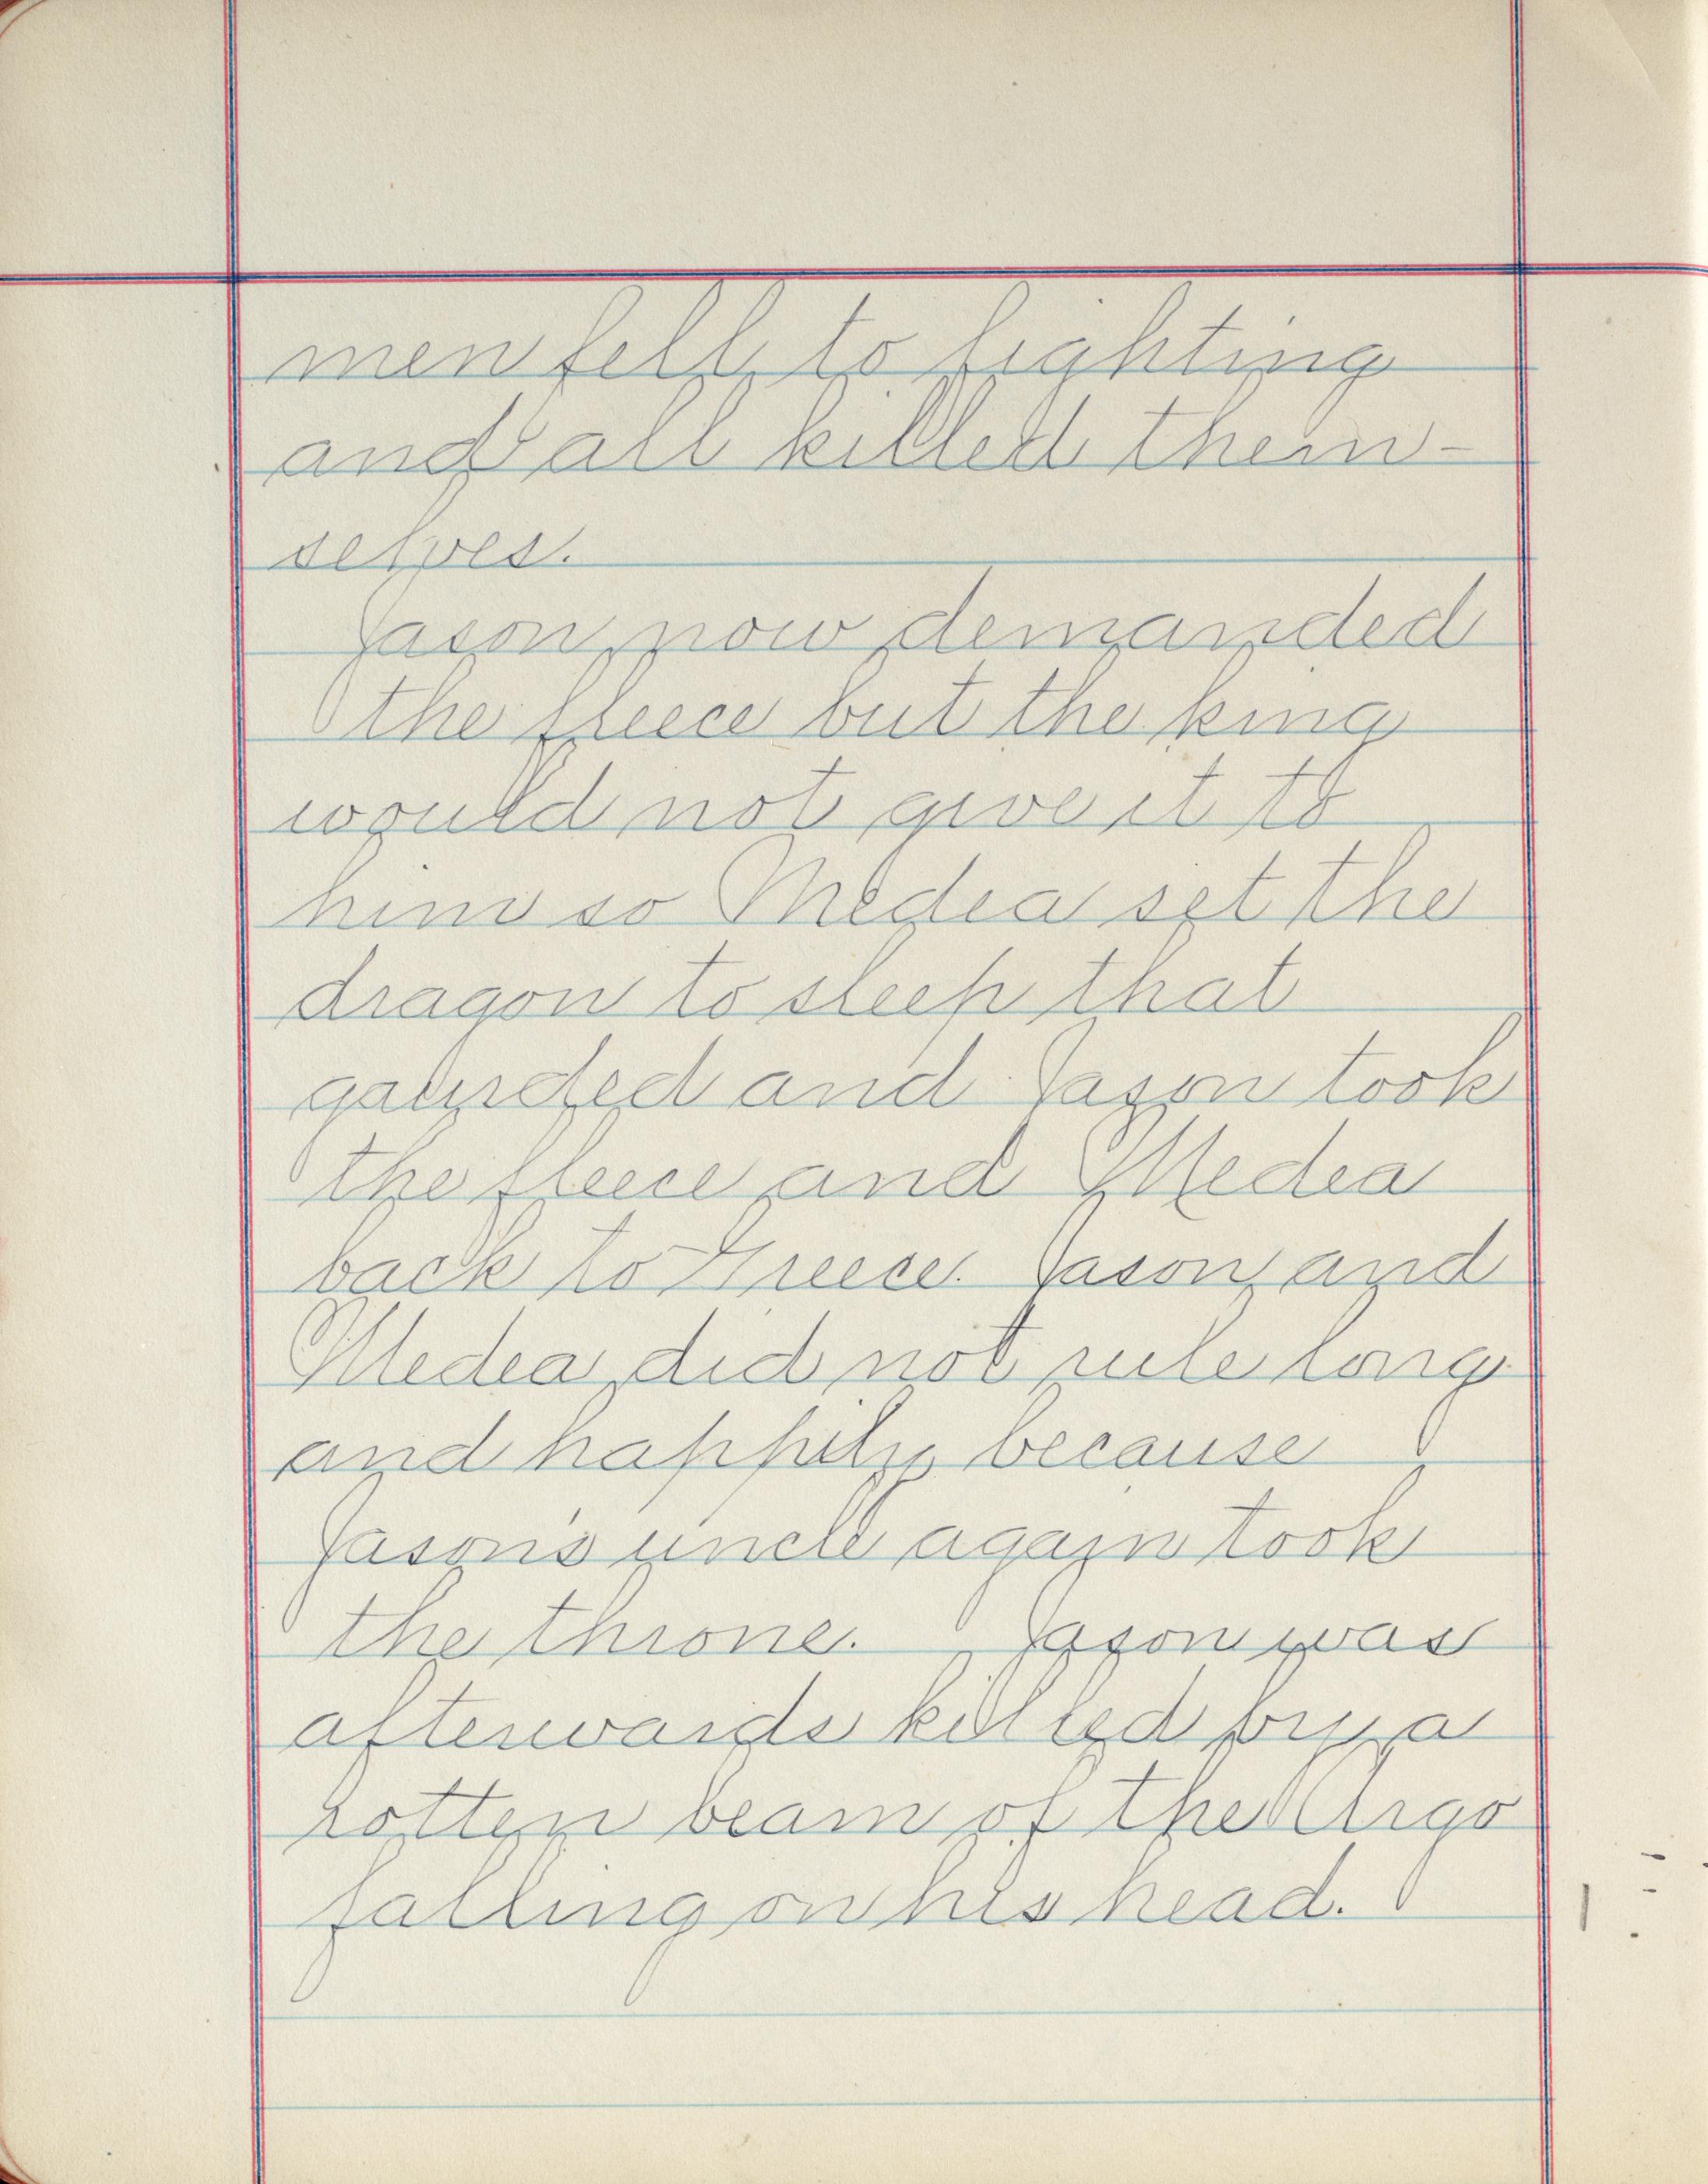 men fell to fighting
and all killed them-
selves.
Jason now demanded
the fleece but the king
would not give it to
him so Medea set the
dragon to sleep that
gaurded and Jason took
the fleece and Medea
back to Greece. Jason and
Medea did not rule long
and happily because
Jason's uncle again took
the throne. Jason was
afterwards killed by a
rotten beam of the Argo
falling on his head.